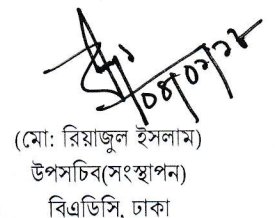 ০৪/০২/২৪
(মো: রিয়াজুল ইসলাম)
উপসচিব(সংস্থাপন)
বিএডিসি, ঢাকা